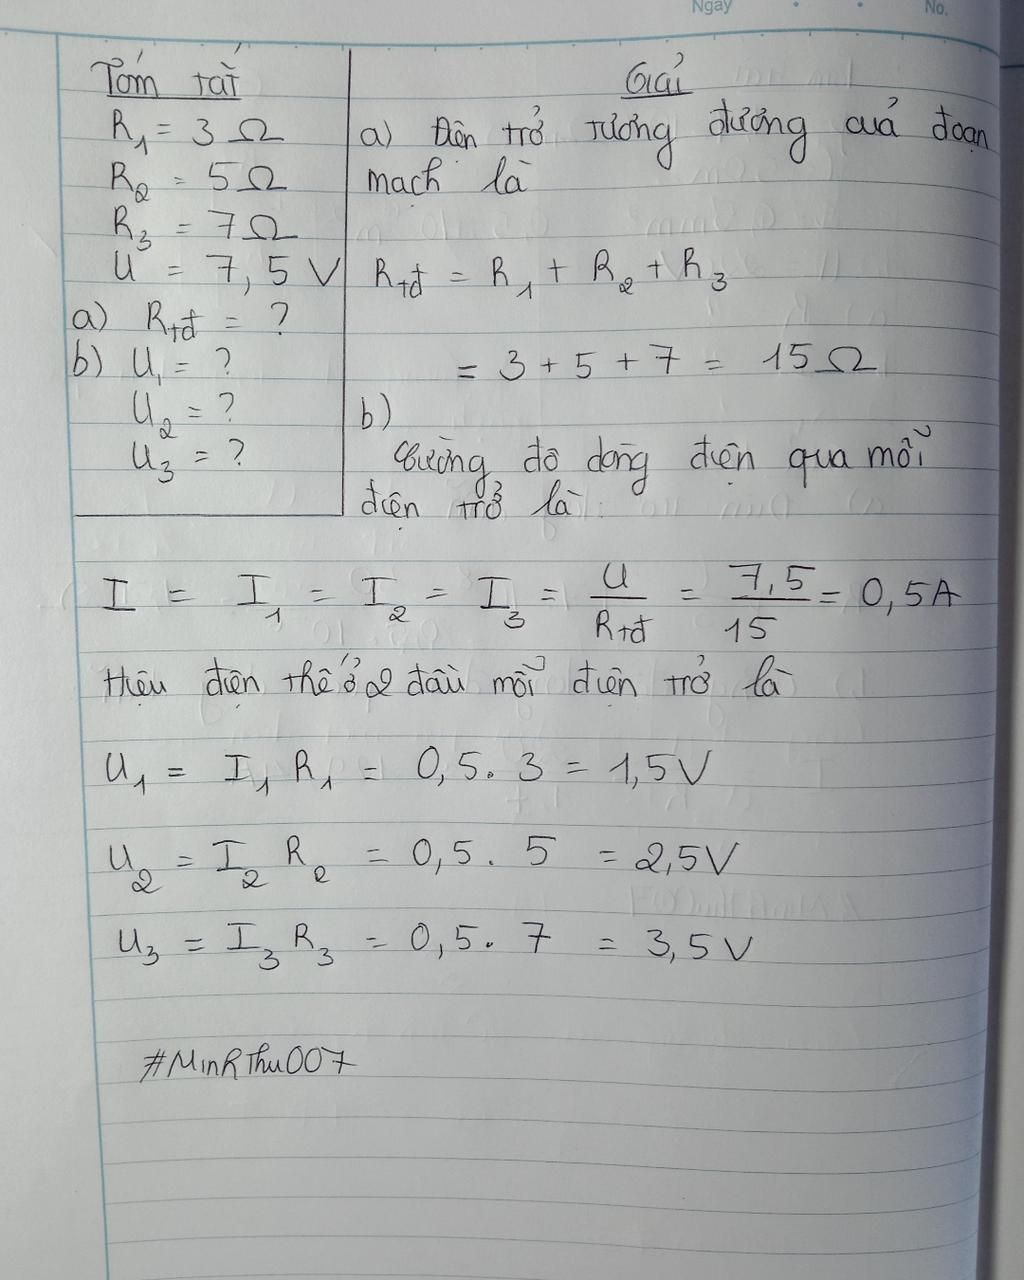 Ngày
No.
Tóm tắt
R₁ = 3 Ω
R₂ = 5 Ω
R₃ = 7 Ω
U = 7,5 V
a) Rtđ = ?
b) U₁ = ?
U₂ = ?
U₃ = ?
Giải
a) Điện trở tương đương cuả đoạn
mạch là
Rtđ = R₁ + R₂ + R₃
= 3 + 5 + 7 = 15 Ω
b)
Cường độ dòng điện qua mỗi
điện trở là:
I = I₁ = I₂ = I₃ = U/Rtđ = 7,5/15 = 0,5A
Hiệu điện thế ở 2 đầu mỗi điện trở là
U₁ = I₁ R₁ = 0,5. 3 = 1,5V
U₂ = I₂ R₂ = 0,5. 5 = 2,5V
U₃ = I₃ R₃ = 0,5. 7 = 3,5V
#MinhThu007